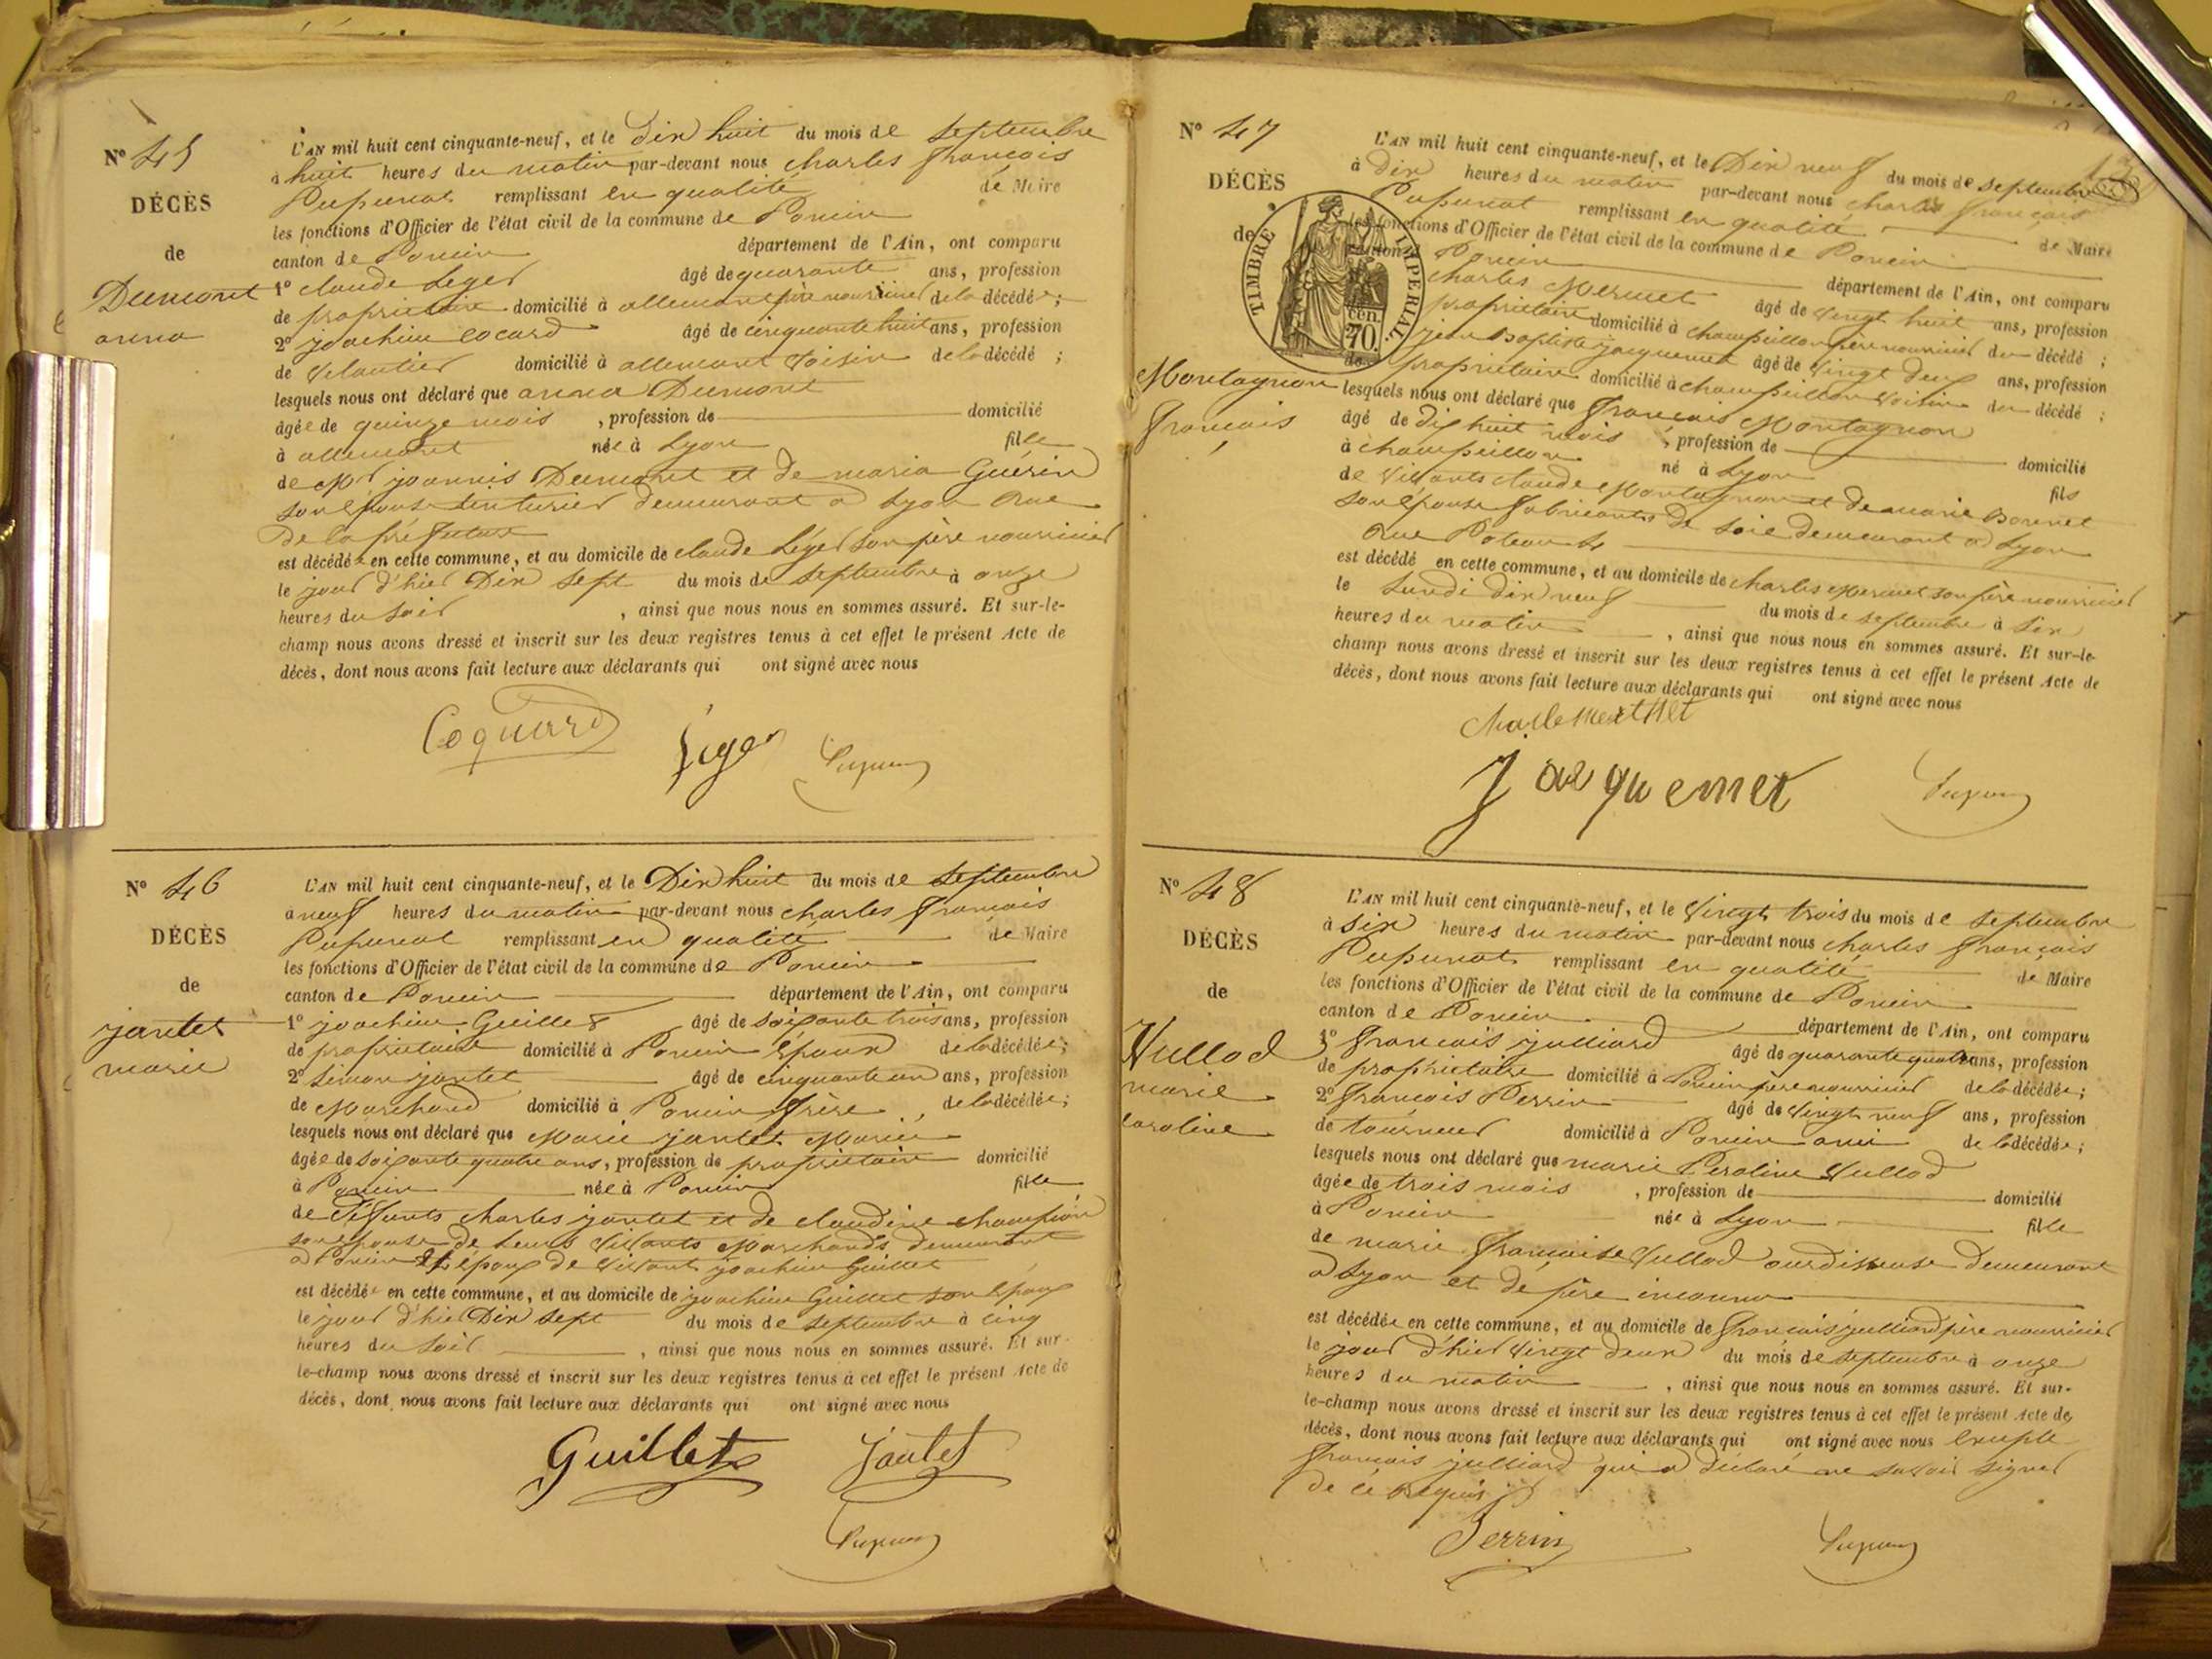 N° 45
DÉCÈS
de
Dumont
anna
L'AN mil huit cent cinquante-neuf, et le Dix huit du mois de Septembre
à huit heures du matin par-devant nous charles françois
Pupunat remplissant en qualité de Maire
les fonctions d'Officier de l'état civil de la commune de Poncin
canton de Poncin département de l'Ain, ont comparu
1° claude Leger âgé de quarante ans, profession
de propriétaire domicilié à allement père nourricier de la décédée;
2° joachim cocard âgé de cinquante huit ans, profession
de domicilié à allement Voisin de la décédé;
lesquels nous ont déclaré que anna Dumont
âgée de quinze mois, profession de domicilié
à allement née à Lyon fille
de Mr joannis Dumont et de maria Guérin
son épouse teinturier demeurant à Lyon Rue
de la préfecture
est décédée en cette commune, et au domicile de claude Léger son père nourricier
le jour d'hier Dix sept du mois de septembre à onze
heures du soir, ainsi que nous nous en sommes assuré. Et sur-le-
champ nous avons dressé et inscrit sur les deux registres tenus à cet effet le présent Acte de
décès, dont nous avons fait lecture aux déclarants qui ont signé avec nous
Coquard Léger
N° 46
DÉCÈS
de
jantet
marie
L'AN mil huit cent cinquante-neuf, et le Dix huit du mois de Septembre
à neuf heures du matin par-devant nous charles françois
Pupunat remplissant en qualité de Maire
les fonctions d'Officier de l'état civil de la commune de Poncin
canton de Poncin département de l'Ain, ont comparu
1° joachim Guillet âgé de soixante trois ans, profession
de propriétaire domicilié à Poncin Epoux de la décédée;
2° Simon jantet âgé de cinquante un ans, profession
de Marchand domicilié à Poncin frère de la décédée;
lesquels nous ont déclaré que Marie jantet Marie
âgée de soixante quatre ans, profession de propriétaire domicilié
à Poncin née à Poncin fille
de Défunts charles jantet et de claudine champion
son épouse de leurs Vivants Marchands demeurant
à Poncin Et épouse de Vivant joachim Guillet
est décédée en cette commune, et au domicile de joachim Guillet son époux
le jour d'hier Dix sept du mois de septembre à cinq
heures du soir, ainsi que nous nous en sommes assuré. Et sur-
le-champ nous avons dressé et inscrit sur les deux registres tenus à cet effet le présent Acte de
décès, dont nous avons fait lecture aux déclarants qui ont signé avec nous
Guillet Jantet
N° 47
DÉCÈS
de
Montagnon
françois
TIMBRE IMPÉRIAL
70 cen.
L'AN mil huit cent cinquante-neuf, et le Dix neuf du mois de septembre
à Dix heures du matin par-devant nous charles françois
Pupunat remplissant en qualité de Maire
les fonctions d'Officier de l'état civil de la commune de Poncin
canton Poncin département de l'Ain, ont comparu
charles Mermet âgé de vingt huit ans, profession
propriétaire domicilié à champeillon père nourricier du décédé;
jean Baptiste jacquemet âgé de vingt deux ans, profession
de propriétaire domicilié à champeillon Voisin du décédé;
lesquels nous ont déclaré que françois Montagnon
âgé de dix huit mois, profession de domicilié
à champeillon né à Lyon fils
de Vivants claude Montagnon et de marie Bonnet
son épouse fabricants de soie demeurant à Lyon
Rue
est décédé en cette commune, et au domicile de charles Mermet son père nourricier
le Lundi dix neuf du mois de septembre à six
heures du matin, ainsi que nous nous en sommes assuré. Et sur-le-
champ nous avons dressé et inscrit sur les deux registres tenus à cet effet le présent Acte de
décès, dont nous avons fait lecture aux déclarants qui ont signé avec nous
Jacquemet
N° 48
DÉCÈS
de
Vullod
marie
caroline
L'AN mil huit cent cinquante-neuf, et le Vingt trois du mois de septembre
à six heures du matin par-devant nous charles françois
Pupunat remplissant en qualité de Maire
les fonctions d'Officier de l'état civil de la commune de Poncin
canton de Poncin département de l'Ain, ont comparu
1° françois julliard âgé de quarante quatre ans, profession
de propriétaire domicilié à Poncin père nourricier de la décédée;
2° françois Perrin âgé de Vingt neuf ans, profession
de tourneur domicilié à Poncin ami de la décédée;
lesquels nous ont déclaré que marie Vullod
âgée de trois mois, profession de domicilié
à Poncin née à Lyon fille
de marie françoise Vullod ourdisseuse demeurant
à Lyon et de père inconnu
est décédée en cette commune, et au domicile de françois julliard père nourricier
le jour d'hier Vingt deux du mois de septembre à onze
heures du matin, ainsi que nous nous en sommes assuré. Et sur-
le-champ nous avons dressé et inscrit sur les deux registres tenus à cet effet le présent Acte de
décès, dont nous avons fait lecture aux déclarants qui ont signé avec nous excepté
françois julliard qui a déclaré ne savoir signer
de ce requis
Perrin